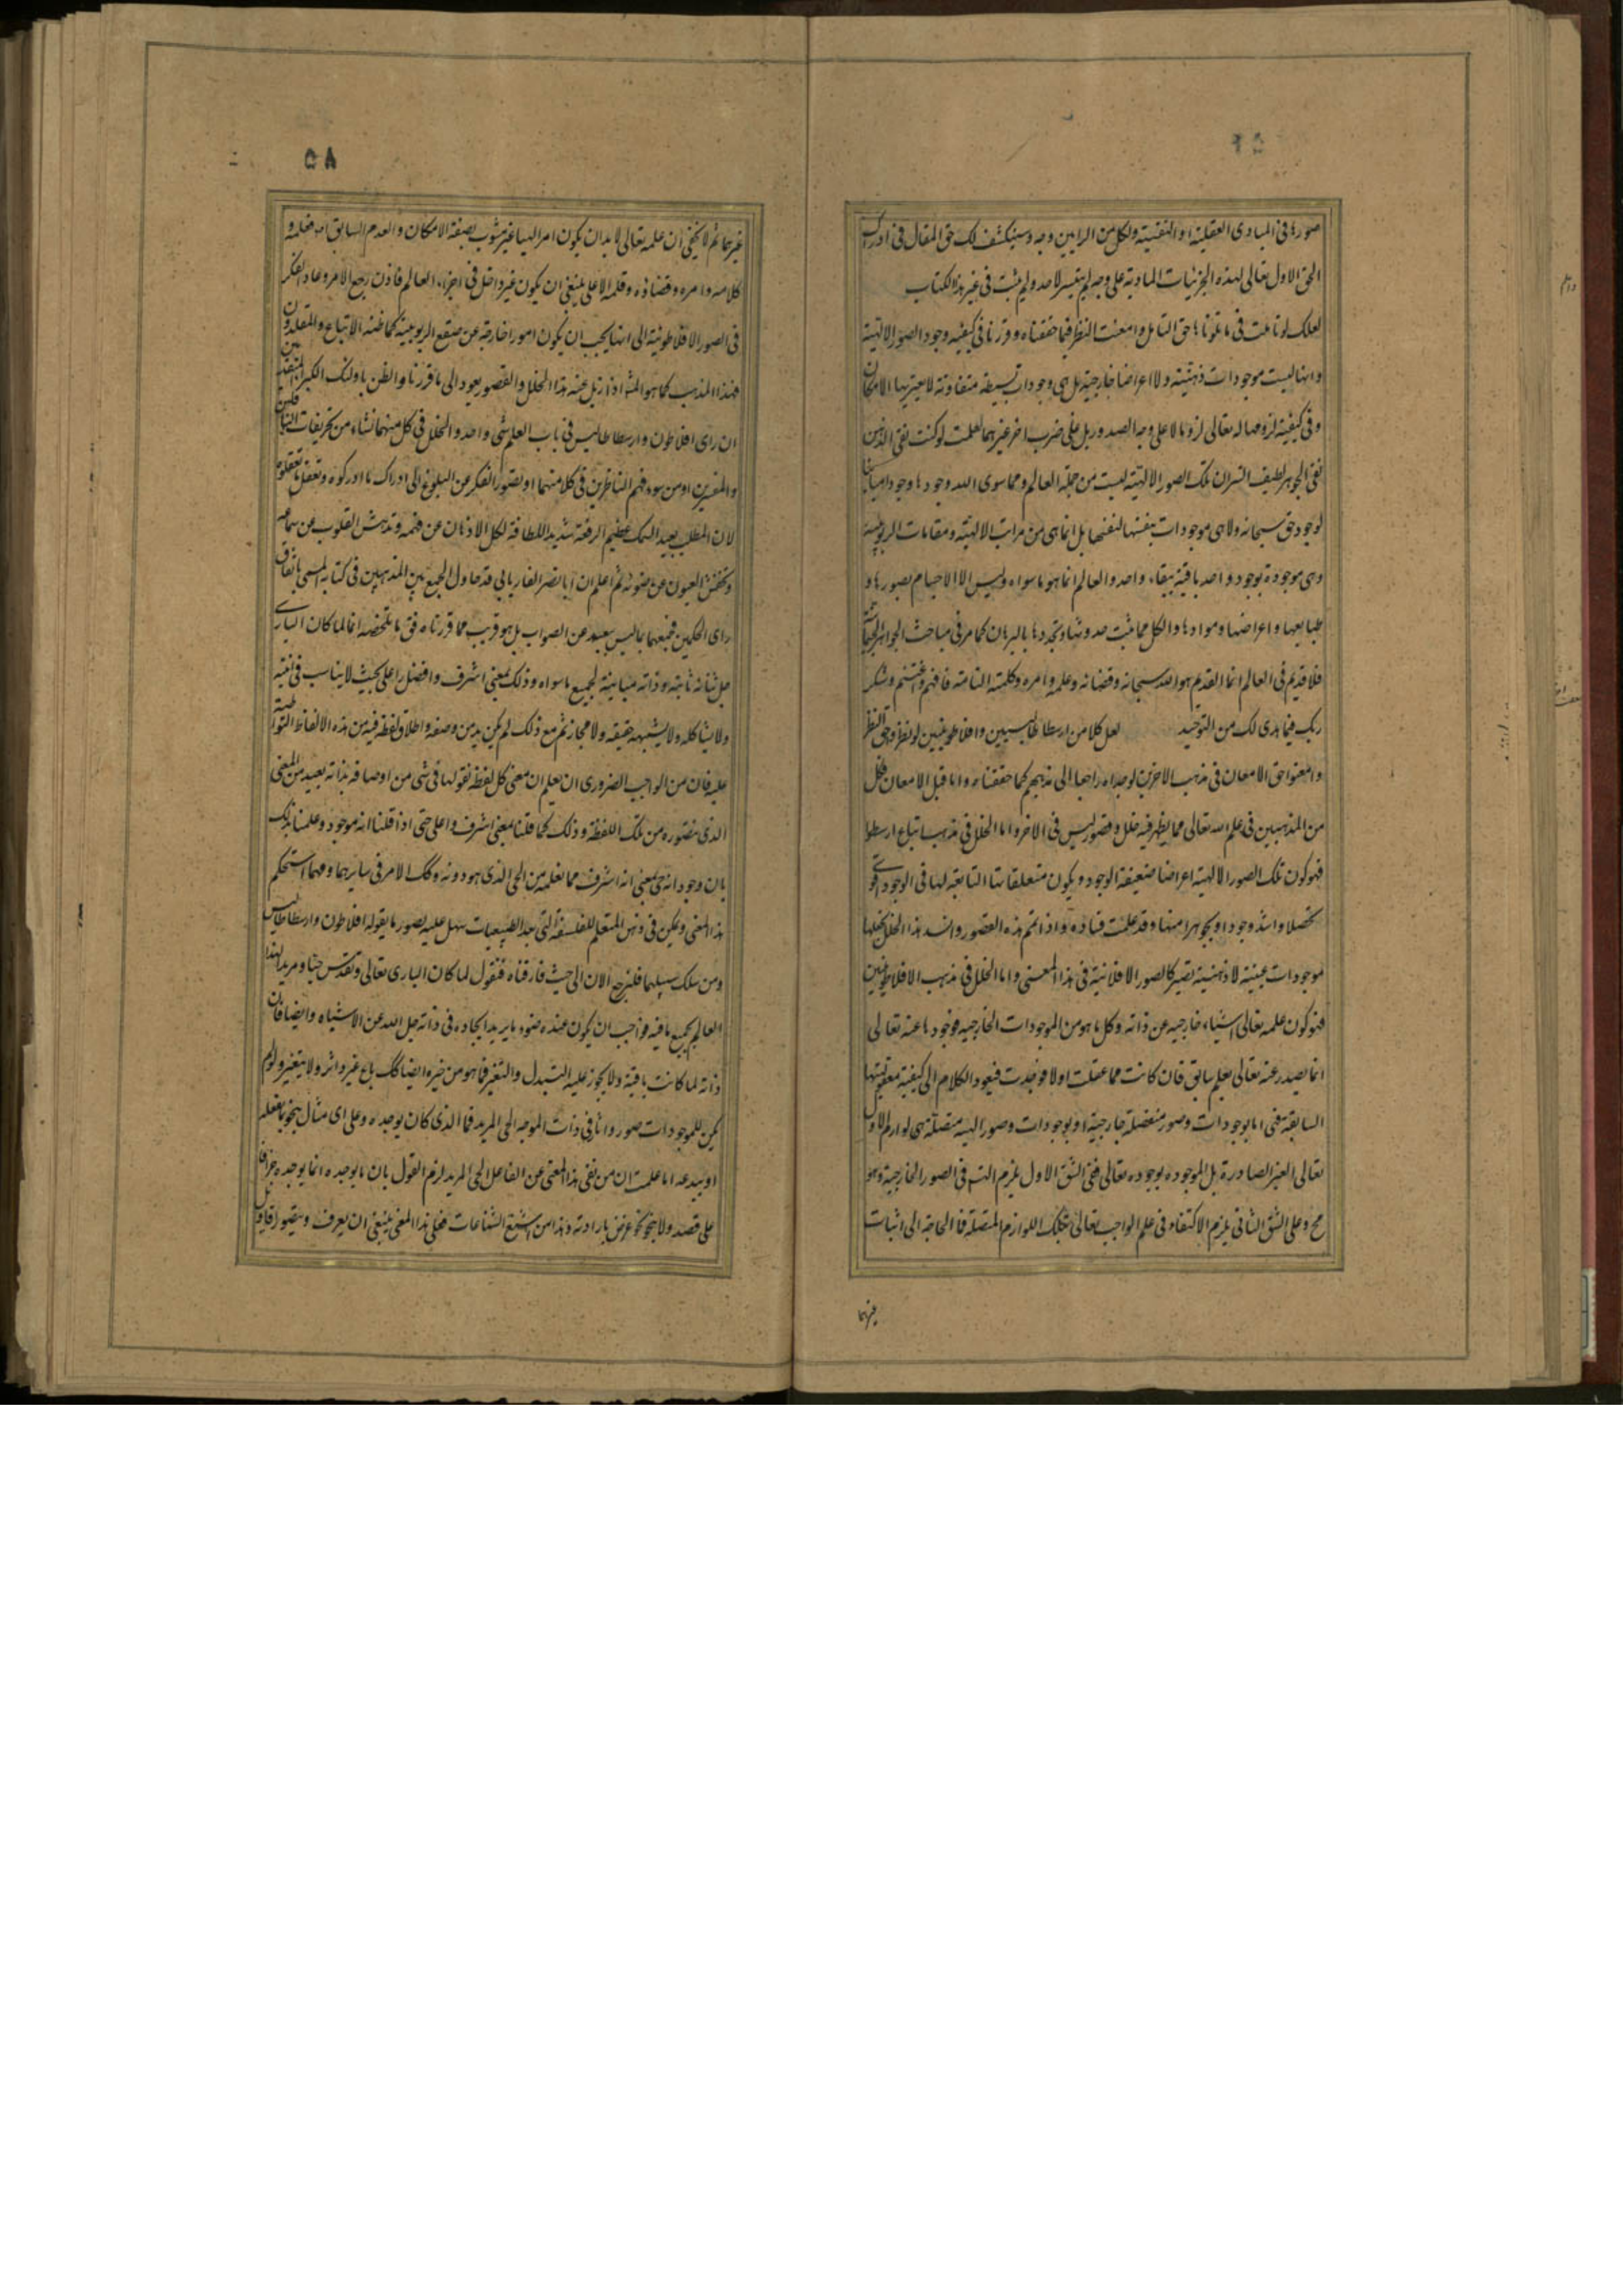 صورها فی المبادی العقلیة او النفسیة ولکل من الرایین وجه وسینکشف لک حق المقال فی ادراک
الحق الاول تعالی لهذه الجزئیات المادیة علی وجه لم یتیسر لاحد ولم یثبت فی غیر هذا الکتاب
لعلک لو تاملت فی ما تلوناها حق التامل وامعنت النظر فیما حققناه وقررنا فی کیفیة وجود الصور الالهیة
وانها لیست موجودات ذهنیة ولا اعراضا خارجیة بل هی وجودات بسیطة متفاوتة لا یعتریها الامکان
وفی کیفیة لزومها له تعالی لزوما لا علی وجه الصدور بل علی ضرب اخر غیرهما لعلمت لو کنت نقی الذهن
نقی الجوهر لطیف السر ان تلک الصور الالهیة لیست من جملة العالم ومما سوی الله وجودها وجودا مباینا
لوجود حق سبحانه ولا هی موجودات بنفسها لنفسها بل انما هی من مراتب الالهیة ومقامات الربوبیة
وهی موجودة بوجود واحد باقیة ببقاء واحد والعالم انما هو ما سواه ولیس الا الاجسام بصورها و
طبایعها واعراضها وموادها والکل مما ثبت حدوثها وتجددها بالبرهان کما مر فی مباحث الجواهر الجسمانیة
فلا قدیم فی العالم انما القدیم هو الله سبحانه وقضائه وعلمه وامره وکلمته التامة فافهم واغتنم وشکر
ربک فیما هدی لک من التوحید لعل کلا من ارسطاطالیسیین وافلاطونیین لو نظروا حق النظر
وامعنوا حق الامعان فی مذهب الاخرین لوجداه راجعا الی مذهبهم کما حققناه واما قبل الامعان فکل
من المذهبین فی علم الله تعالی مما یظهر فیه خلل وقصور لیس فی الاخر واما الخلل فی مذهب اتباع ارسطو
فهو کون تلک الصور الالهیة اعراضا ضعیفة الوجود ویکون متعلقاتها التابعة لها فی الوجود اقوی
تحصلا واشد وجودا وجوهرا منها وقد علمت فساده واذا تم هذه القصور وانسد هذا الخلل بجعلها
موجودات عینیة لا ذهنیة تصیر کالصور الافلاطنیة فی هذا المعنی واما الخلل فی مذهب الافلاطونیین
فهو کون علمه تعالی اشیاء خارجیة عن ذاته وکل ما هو من الموجودات الخارجیه فوجودها عنه تعالی
انما یصدر عنه تعالی بعلم سابق فان کانت مما عقلت اولا فوجدت فیعود الکلام الی کیفیة معقولیتها
السابقة فهی اما بوجودات وصور منفصلة خارجیة او بوجودات وصور الهیة متصلة هی لوازم الاول
تعالی الغیر الصادرة بل الموجودة بوجوده تعالی فعلی الشق الاول یلزم التس فی الصور الخارجیة وهو
مح وعلی الشق الثانی یلزم الاکتفاء فی علم الواجب تعالی بتلک اللوازم المتصلة فما الحاجة الی اثبات
۵۸
غیرهما ثم لا یخفی ان علمه تعالی لا بد ان یکون امرا الهیا غیر مشوب بصفة الامکان والعدم السابق اذ فعلمه و
کلامه وامره وقضاؤه وقلمه الاعلی ینبغی ان یکون غیر داخل فی اجزاء العالم فاذن رجع الامر وعاد الفکر
فی الصور الافلاطونیة الی انها یجب ان یکون امورا خارجة عن صقع الربوبیة کما ظنه الاتباع والمقلدون
فهذا المذهب کما هو المشا اذا زیل عنه هذا الخلل والقصور یعود الی ما قررنا والظن باولئک الکبراء
ان رای افلاطون وارسطاطالیس فی باب العلم شی واحد والخلل فی کل منهما نشاء من تحریفات الناقلین
والمفسرین او من سوء فهم الناظرین فی کلامیهما او بقصور الفکر عن البلوغ الی ادراک ما ادرکوه وتعقل ما تعقلوه
لان المطلب بعید السمک عظیم الرفعة شدید اللطافة لکل الاذهان عن فهمه وتدهش القلوب عن سماعه
وتخفش العیون عن ضوئه ثم اعلم ان ابا نصر الفاریابی قد حاول الجمع بین المذهبین فی کتابه المسمی باتفاق
رای الحکمین فجمعهما بما لیس ببعید عن الصواب بل هو قریب مما قررناه فق ما تلخصه انما لما کان الباری
جل ثنائه ثابته وذاته مباینة لجمیع ما سواه وذلک لمعنی اشرف وافضل واعلی بحیث لا یناسب فی انیته
ولا یشاکله ولا یشبهه حقیقة ولا مجازا ثم مع ذلک لم یکن بد من وصفه واطلاق لفظ فیه من هذه الالفاظ المتواطیة
علیه فان من الواجب الضروری ان یعلم ان معنی کل لفظة نقولها فی شی من اوصافه بذاته بعید من المعنی
الذی نتصوره من تلک اللفظة وذلک کما قلنا لمعنی اشرف واعلی حتی اذا قلنا انه موجود وعلمنا بذلک
بان وجوده انه حی لمعنی انه اشرف مما نعلمه من الحی الذی هو دونه وکک الامر فی سایرها ومهما استحکم
هذا المعنی وتمکن فی ذهن المتعلم للفلسفة التی بعد الطبیعیات سهل علیه تصور ما یقوله افلاطون وارسطاطالیس
ومن سلک سبیلهما فلنرجع الان الی حیث فارقناه فنقول لما کان الباری تعالی وتقدس حیا ومریدا لهذا
العالم بجمیع ما فیه فواجب ان یکون عنده صور ما یرید ایجاده فی ذاته جل الله عن الاشباه وایضا فان
ذاته لما کانت باقیة ولا یجوز علیه التبدل والتغیر فما هو من حیزه ایضا کک باق غیر داثر ولا یتغیر ولو لم
یکن للموجودات صور واثار فی ذات الموجد الحی المرید فما الذی کان یوجده وعلی ای مثال ینحو بما یفعله
او یبدعه اما علمت ان من نفی هذا المعنی عن الفاعل الحی المرید لزم القول بان ما یوجده انما یوجده جزافا
علی قصد ولا ینحو نحو غرض بارادته وهذا من اشنع الشناعات فعلی هذا المعنی ینبغی ان یعرف ویتصور اقاویل